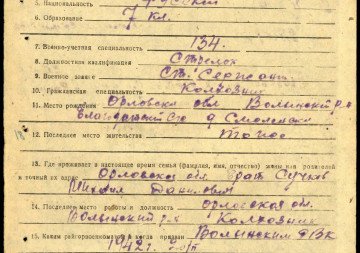 5. Национальность Русский
6. Образование 7 кл.
7. Военно-учетная специальность 134.
8. Должностная квалификация Стрелок
9. Военное звание Ст. Сержант
10. Гражданская специальность Колхозник
11. Место рождения Орловская обл Волынский р-н
д Смоленск
12. Последнее место жительства то же
13. Где проживает в настоящее время семья (фамилия, имя, отчество) жены или родителей
и точный их адрес Орловская обл. брат Сучков
Михаил Данилович
14. Последнее место работы и должность Орловская обл.
Волынский р-н Колхозник
15. Каким райгорвоенкоматом и когда призван Волынским РВК
1942 г.